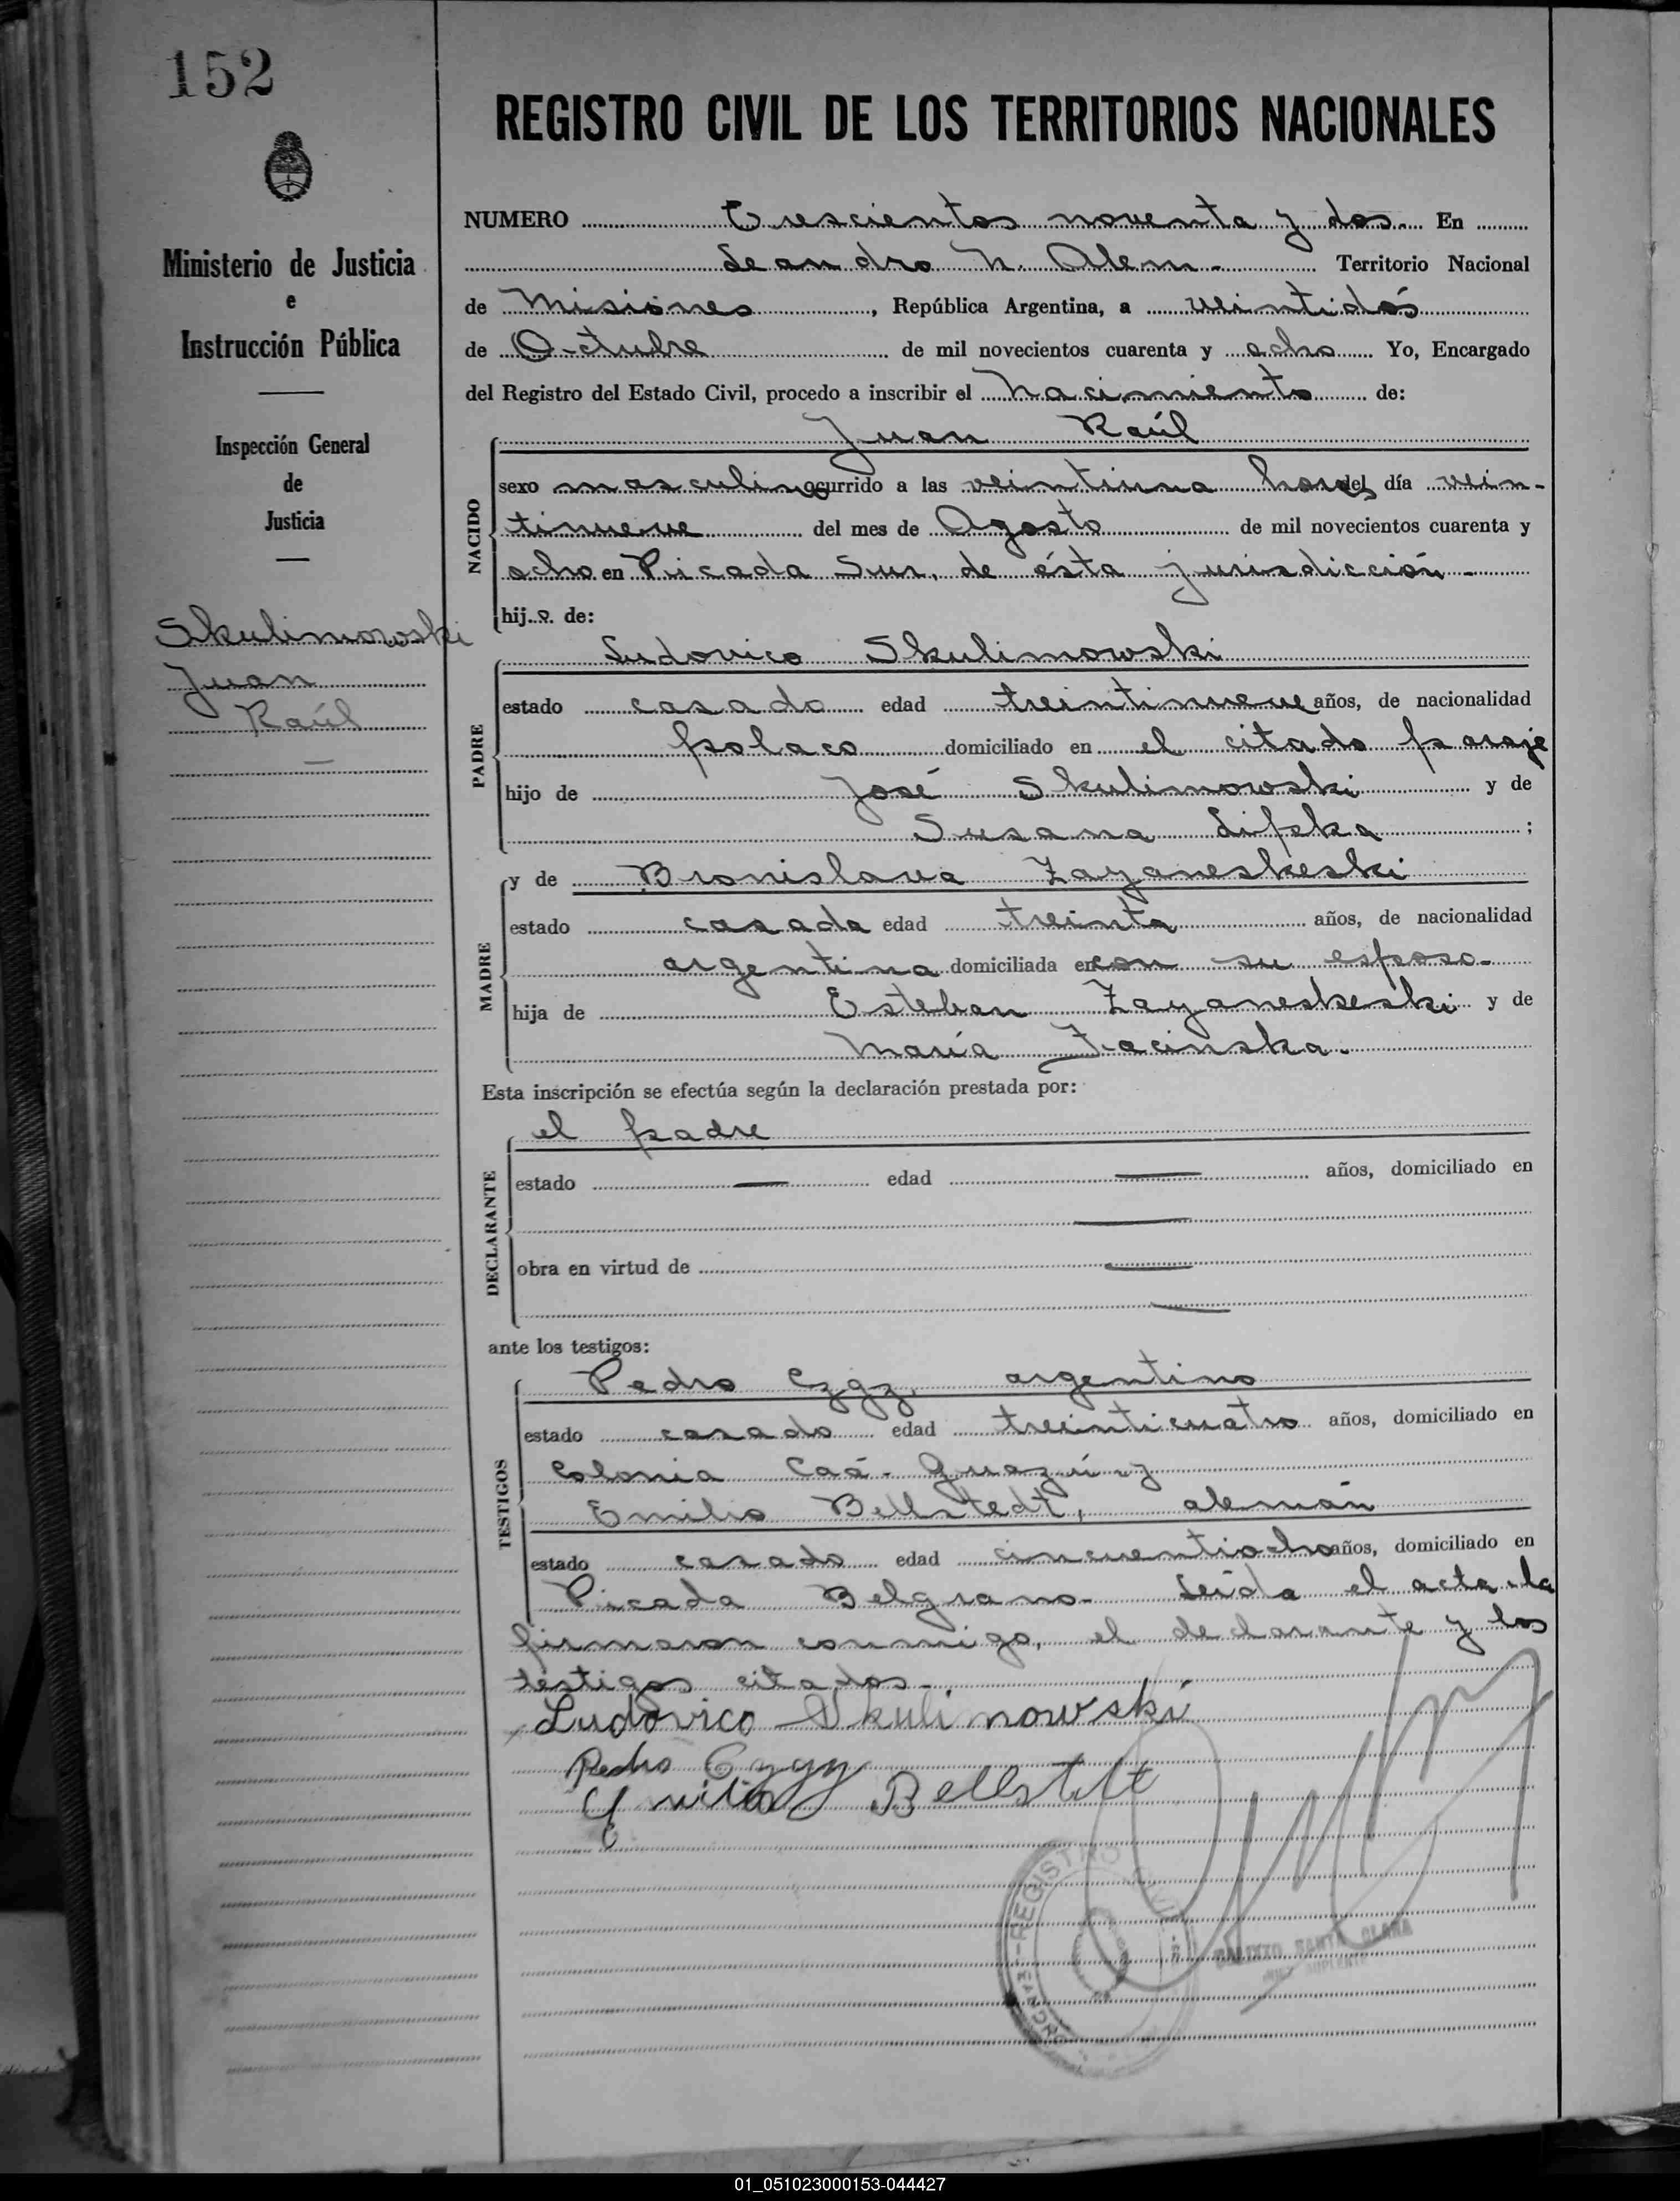 152
Ministerio de Justicia
e
Instrucción Pública
Inspección General
de
Justicia
Skulimowski
Juan
Raúl
REGISTRO CIVIL DE LOS TERRITORIOS NACIONALES
NUMERO Trescientos noventa y dos. En
Leandro N. Alem. Territorio Nacional
de Misiones, República Argentina, a veintidós
de Octubre de mil novecientos cuarenta y ocho Yo, Encargado
del Registro del Estado Civil, procedo a inscribir el nacimiento de:
Juan Raúl
NACIDO
sexo masculino ocurrido a las veintiuna horas del día vein-
tinueve del mes de Agosto de mil novecientos cuarenta y
ocho en Picada Sur, de ésta jurisdicción-
hijo de:
PADRE
Ludovico Skulimowski
estado casado edad treintinueve años, de nacionalidad
polaco domiciliado en el citado paraje
hijo de José Skulimowski y de
Susana Lipka ;
MADRE
y de Bronislava Zayaneskeski
estado casada edad treinta años, de nacionalidad
argentina domiciliada en con su esposo-
hija de Esteban Zayaneskeski y de
María Jacinska.
Esta inscripción se efectúa según la declaración prestada por:
DECLARANTE
el padre
estado — edad — años, domiciliado en
—
obra en virtud de —
—
ante los testigos:
TESTIGOS
Pedro Czyz, argentino
estado casado edad treinticuatro años, domiciliado en
Colonia Caá-Guazú y
Emilio Bellstedt, alemán
estado casado edad cincuentiocho años, domiciliado en
Picada Belgrano- Leída el acta la
firmaron conmigo, el declarante y los
testigos citados-
Ludovico Skulimowski
Pedro Czyz
Emilio Bellstedt
REGISTRO CIVIL
SANTA CLARA
JUEZ SUPLENTE
01_051023000153-044427